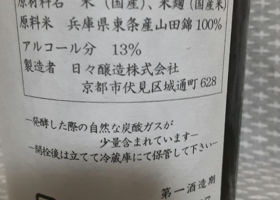 原材料名 米(国産)、米麹(国産米)
原料米 兵庫県東条産山田錦100%
アルコール分 13%
製造者 日々醸造株式会社
京都市伏見区城通町628
―発酵した際の自然な炭酸ガスが
少量含まれています―
―開栓後は立てて冷蔵庫にて保管して下さい―
第一酒造謝